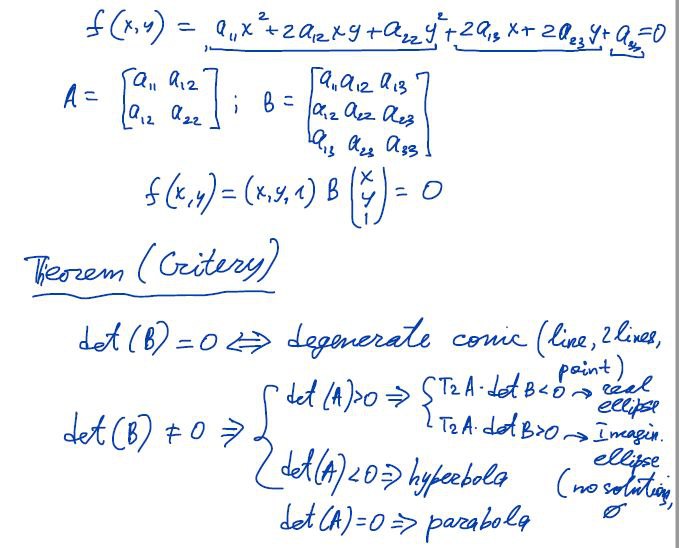 f(x,y) = a₁₁x² + 2a₁₂xy + a₂₂y² + 2a₁₃x + 2a₂₃y + a₃₃ = 0
A = [a₁₁ a₁₂; a₁₂ a₂₂] ; B = [a₁₁ a₁₂ a₁₃; a₁₂ a₂₂ a₂₃; a₁₃ a₂₃ a₃₃]
f(x,y) = (x,y,1) B (x y 1) = 0
Theorem (Critery)
det(B) = 0 ⇔ degenerate conic (line, 2 lines, point)
det(B) ≠ 0 ⇒ { det(A)>0 ⇒ { Tr A · det B < 0 → real ellipse
Tr A · det B > 0 → Imagin. ellipse (no solutions, ∅
det(A) < 0 ⇒ hyperbola
det(A) = 0 ⇒ parabola